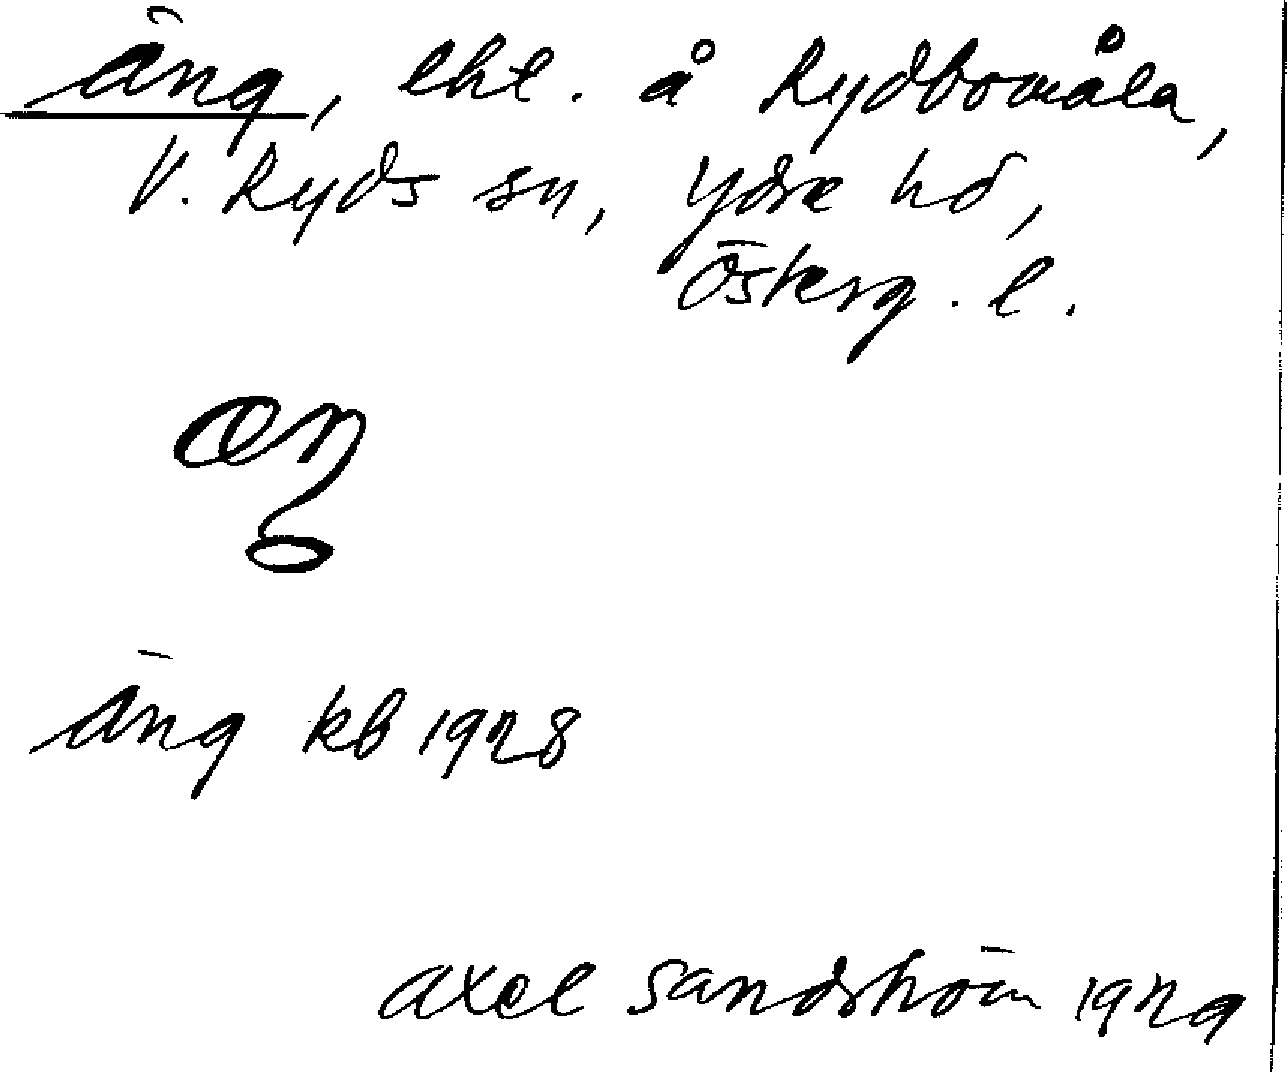 Äng, lht. å Rydbomåla,
V. Ryds sn, Ydre hd,
Österg. l.
æŋ
Äng kb 1928
Axel Sandström 1929